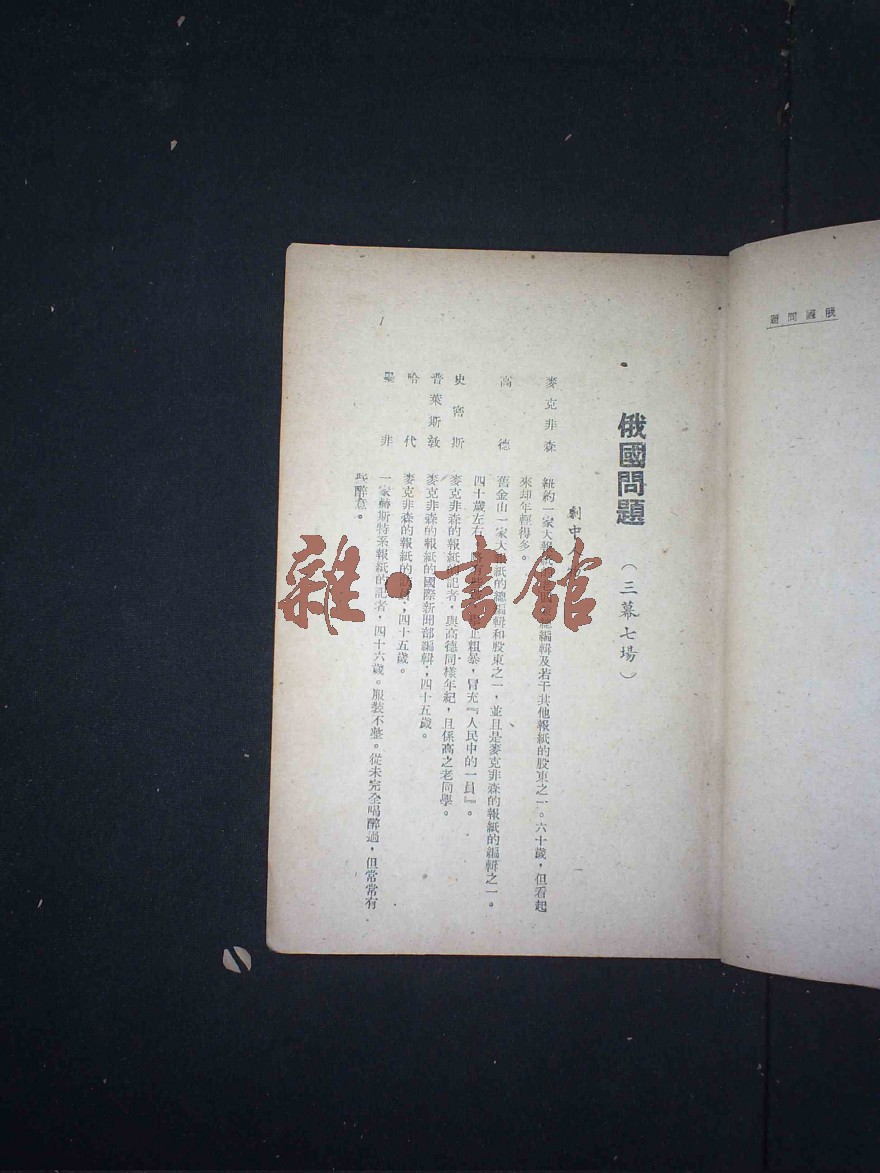 題問國俄
俄國問題
（三幕七場）
劇中人
麥克非森　紐約一家大報紙 總編輯及若干其他報紙的股東之一。六十歲，但看起
來却年輕得多。
高德　舊金山一家大報紙的總編輯和股東之一，並且是麥克非森的報紙的編輯之一。
四十歲左右， 止粗暴，冒充『人民中的一員』。
史密斯　麥克非森的報紙的記者，與高德同樣年紀，且係高之老同學。
普萊斯敦　麥克非森的報紙的國際新聞部編輯；四十五歲。
哈代　麥克非森的報紙的 ；四十五歲。
墨非　一家赫斯特系報紙的記者，四十六歲。服裝不整。從未完全喝醉過，但常常有
些醉意。
1
雜·書館